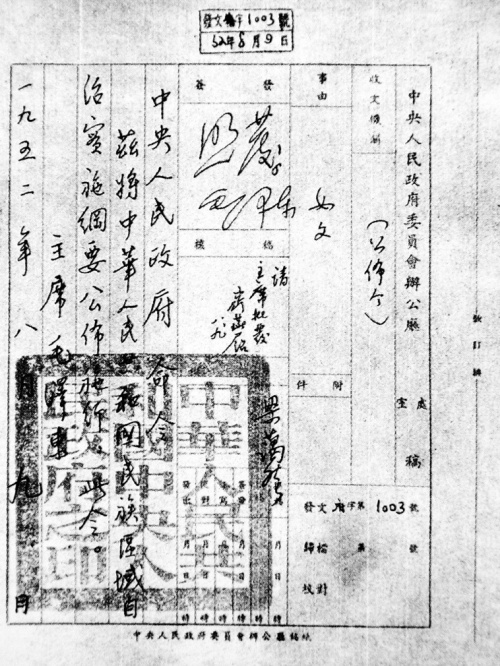 發文府字1003號
52年8月9日
中央人民政府委員會辦公廳 處室 稿
收文機關
（公佈令）
事由
如文
附件
發文 府字第 1003 號
歸檔 號
校對
簽發
照發
毛澤東
核稿
請
主席批發
齊燕銘
八、九
中央人民政府命令
茲將中華人民共和國民族區域自
治實施綱要公佈施行。此令。
主席毛澤東
一九五二年八月九日
中華人民共
和國中央人
民政府之印
中央人民政府委員會辦公廳稿紙